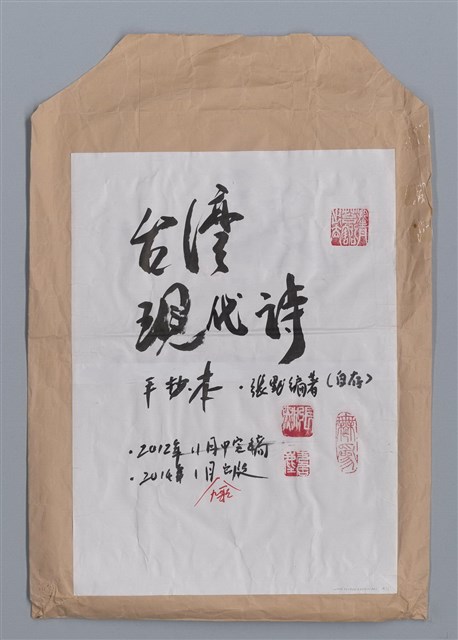 台灣
現代詩
手抄本・張默編著(自存)
・2012年11月中完稿
・2014年1月出版
九歌